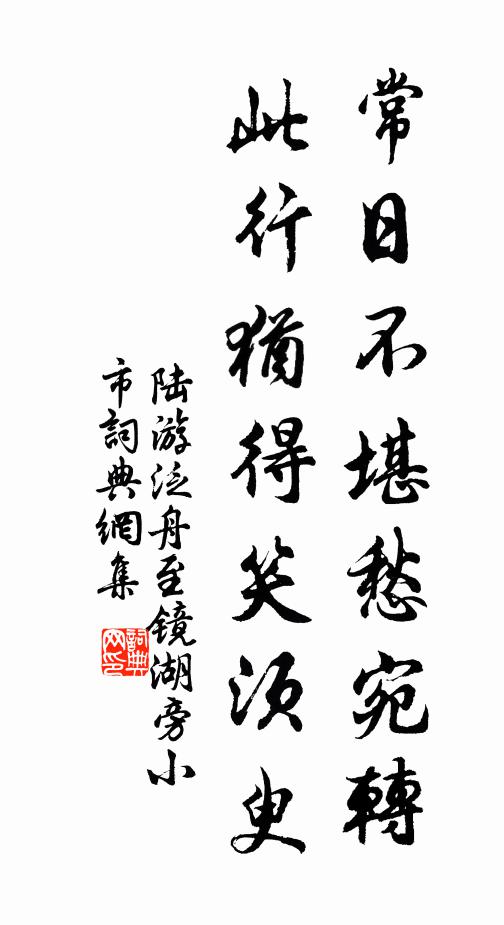 常日不堪愁宛轉
此行猶得笑須臾
陆游泛舟至鏡湖旁小
市詞典網集
詞典网印